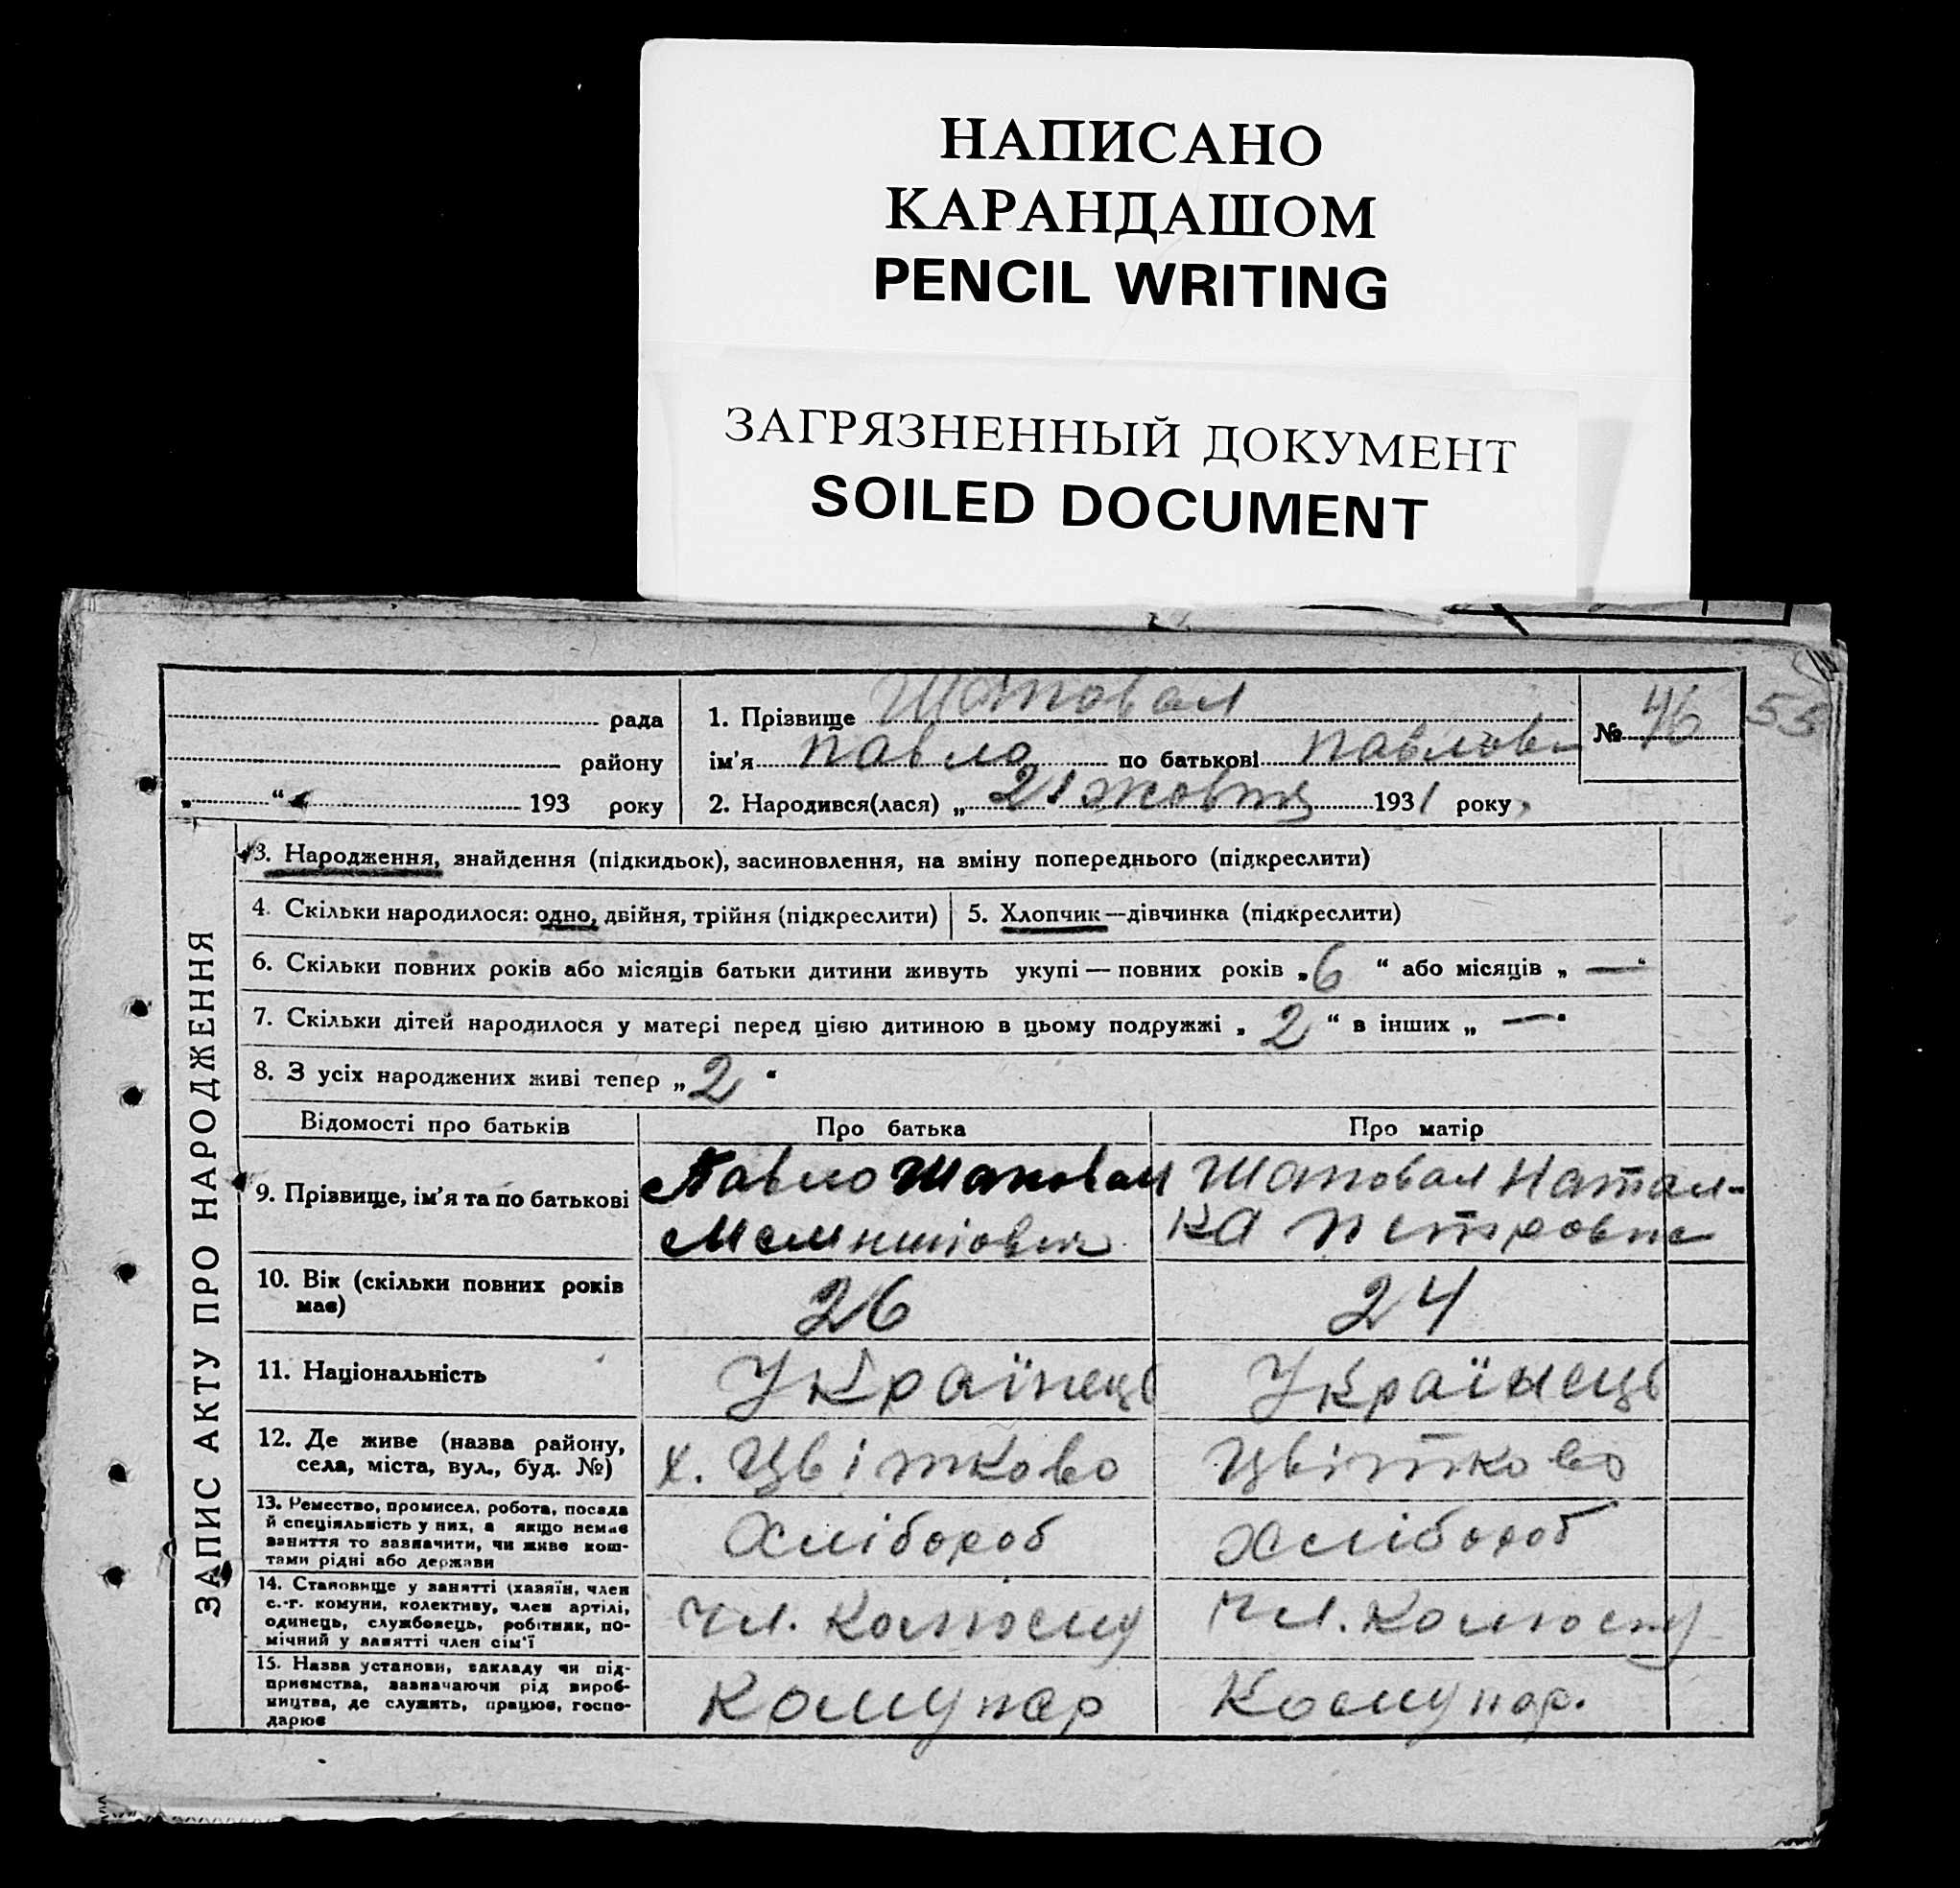 НАПИСАНО
КАРАНДАШОМ
PENCIL WRITING
ЗАГРЯЗНЕННЫЙ ДОКУМЕНТ
SOILED DOCUMENT
рада
району
„ “ 193 року
1. Прізвище Шаповал
ім'я Павло по батькові Павлов
2. Народився(лася) „ 21 жовтня 1931 року
№ 46
55
ЗАПИС АКТУ ПРО НАРОДЖЕННЯ
3. Народження, знайдення (підкидьок), засиновлення, на зміну попереднього (підкреслити)
4. Скільки народилося: одно, двійня, трійня (підкреслити)
5. Хлопчик—дівчинка (підкреслити)
6. Скільки повних років або місяців батьки дитини живуть укупі — повних років „ 6 “ або місяців „ — “
7. Скільки дітей народилося у матері перед цією дитиною в цьому подружжі „ 2 “ в інших „ — “
8. З усіх народжених живі тепер „ 2 “
Відомості про батьків
Про батька
Про матір
9. Прізвище, ім'я та по батькові
Павло Шаповал
Шаповал Натал-
ка Петровна
10. Вік (скільки повних років
має)
26
24
11. Національність
Українець
Українець
12. Де живе (назва району,
села, міста, вул., буд. №)
х. Цвітково
Цвітково
13. Ремество, промисел, робота, посада
й спеціяльність у них, а якщо немає
заняття то зазначити, чи живе кош-
тами рідні або держави
Хлібороб
Хлібороб
14. Становище у занятті (хазяїн, член
с.-г. комуни, колективу, член артілі,
одинець, службовець, робітник, по-
мічний у занятті член сім'ї
чл. колгоспу
чл. колгоспу
15. Назва установи, закладу чи під-
приємства, зазначаючи рід вироб-
ництва, де служить, працює, госпо-
дарює
Комунар
Комунар.